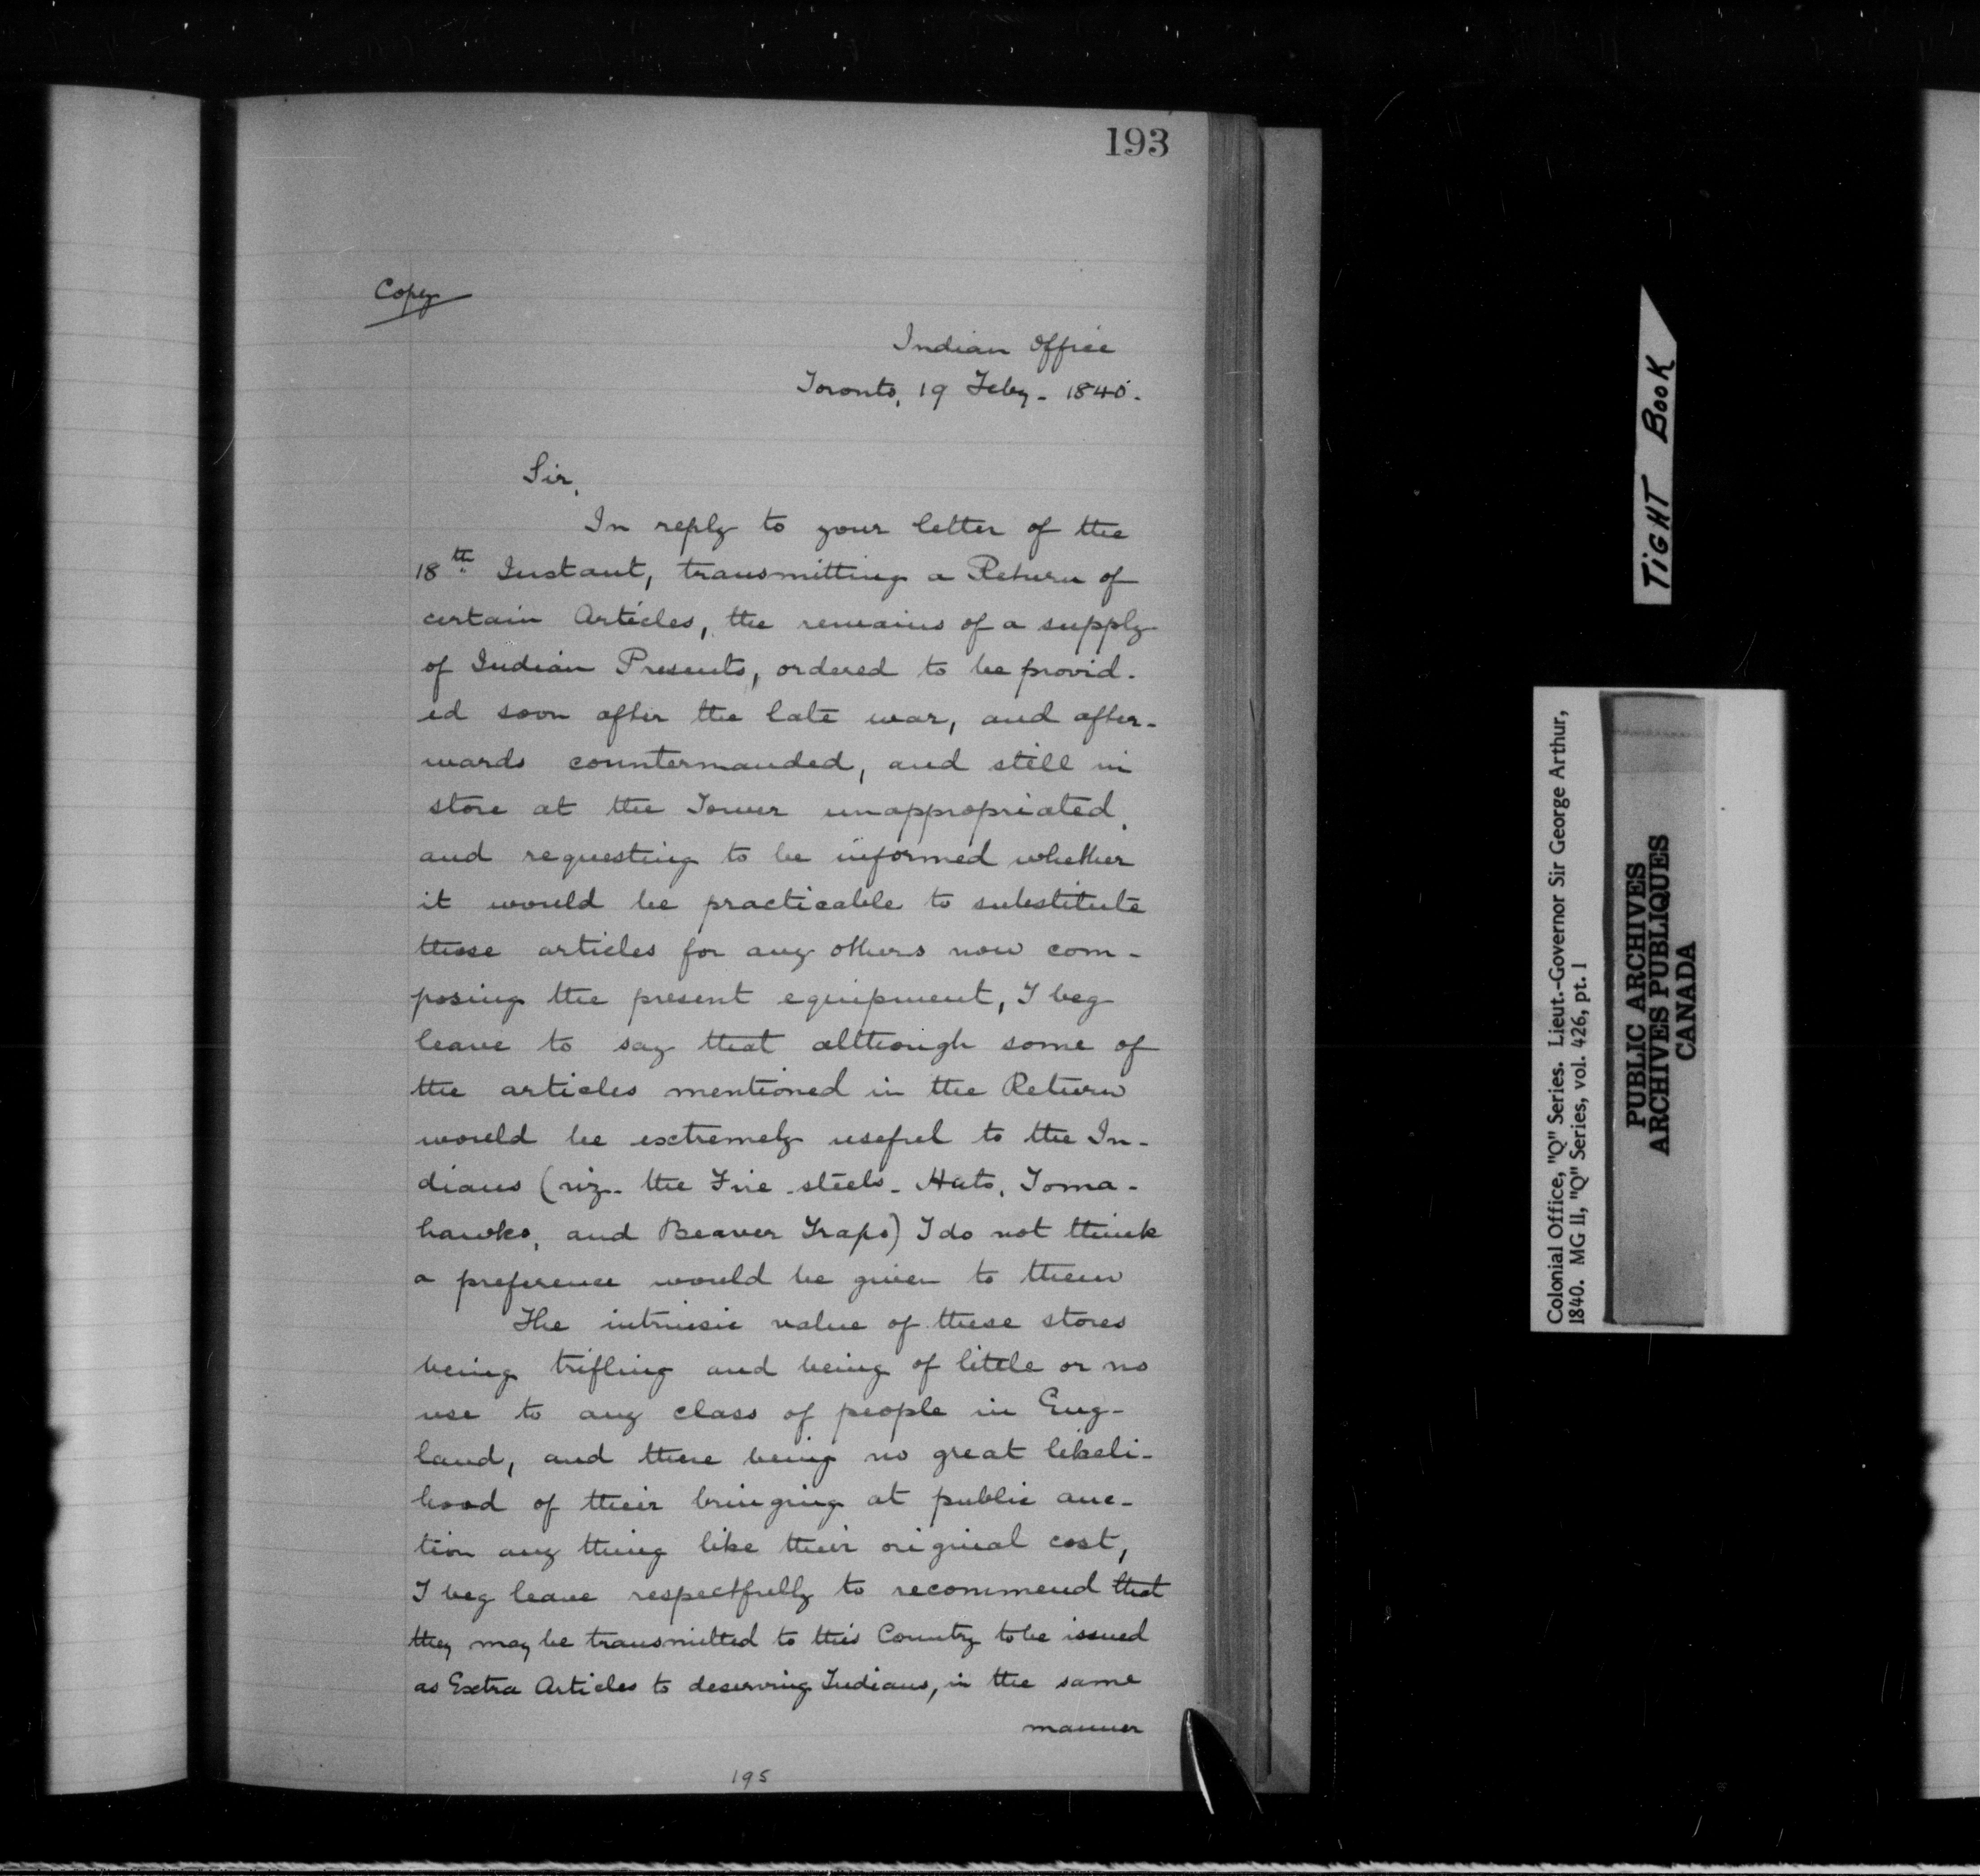 193
Copy
Indian Office
Toronto, 19 Feby - 1840.
Sir,
In reply to your letter of the
18th Instant, transmitting a Return of
certain Articles, the remains of a supply
of Indian Presents, ordered to be provid-
ed soon after the late war, and after-
wards countermanded, and still in
store at the Tower unappropriated,
and requesting to be informed whether
it would be practicable to substitute
these articles for any others now com-
posing the present equipment, I beg
leave to say that although some of
the articles mentioned in the Return
would be extremely useful to the In-
dians (viz. the Fire steels - Hats, Toma-
hawks, and Beaver Traps) I do not think
a preference would be given to them
The intrinsic value of these stores
being trifling and being of little or no
use to any class of people in Eng-
land, and there being no great likeli-
hood of their bringing at public auc-
tion any thing like their original cost,
I beg leave respectfully to recommend that
they may be transmitted to this Country to be issued
as Extra Articles to deserving Indians, in the same
manner
195
TIGHT BOOK
Colonial Office, "Q" Series. Lieut.-Governor Sir George Arthur,
1840. MG 11, "Q" Series, vol. 426, pt. 1
PUBLIC ARCHIVES
ARCHIVES PUBLIQUES
CANADA